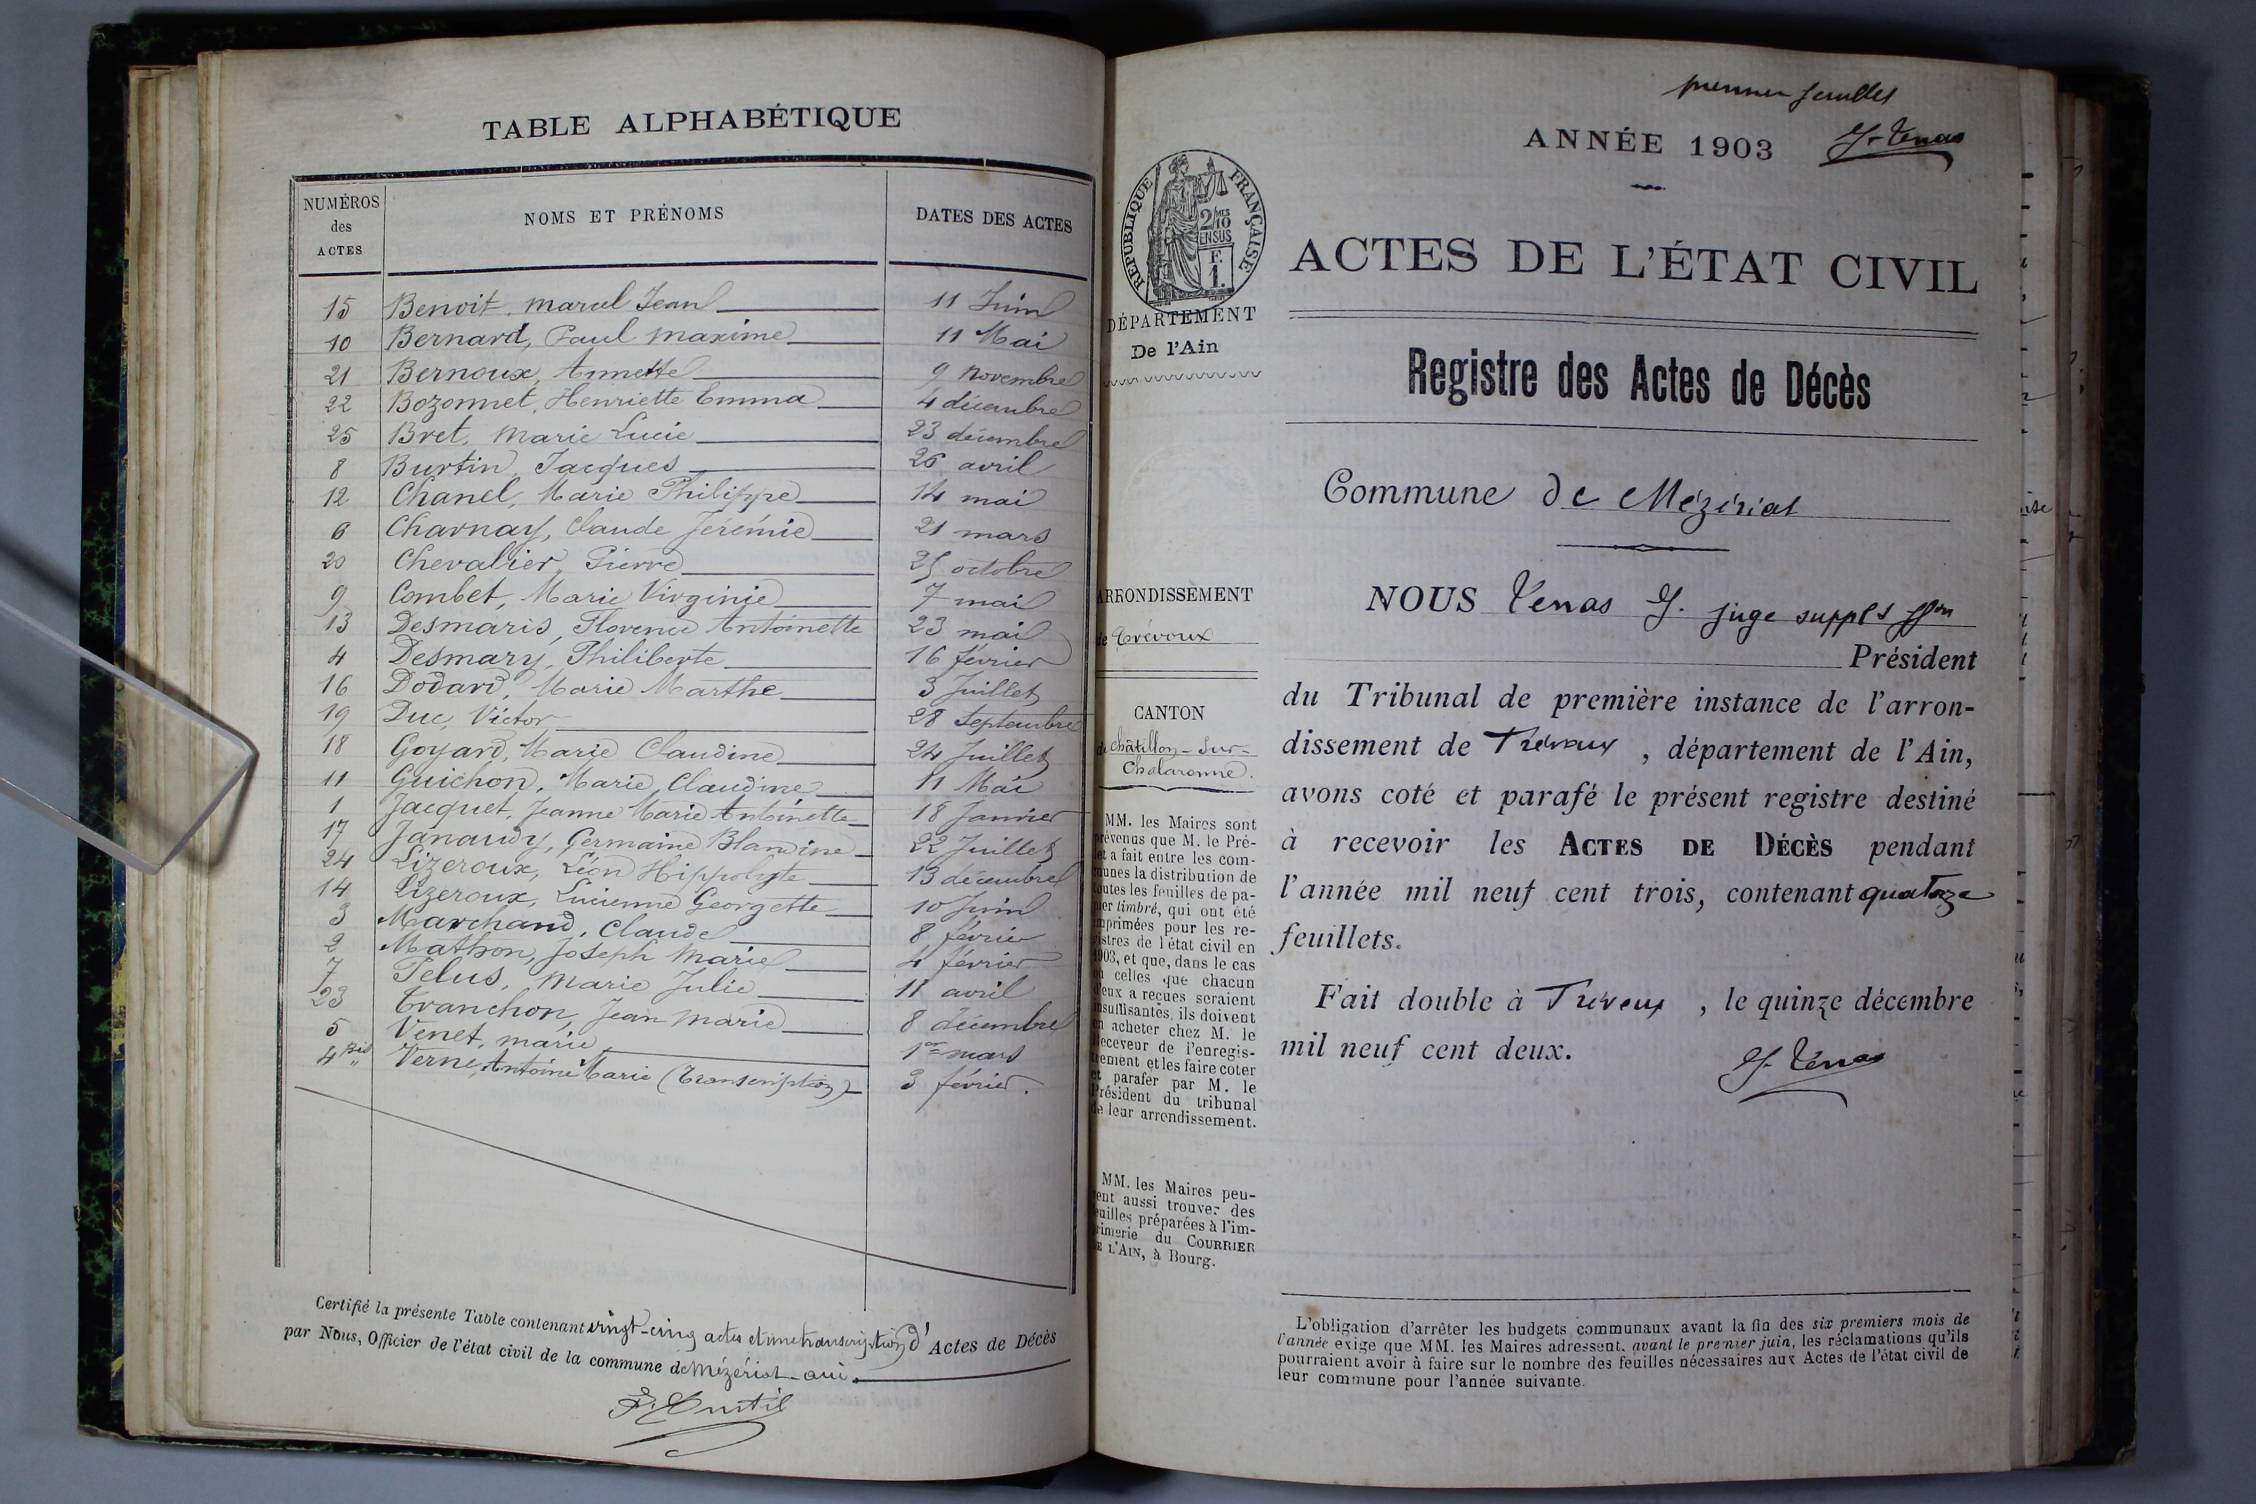 TABLE ALPHABÉTIQUE
NUMÉROS
des
ACTES
NOMS ET PRÉNOMS
DATES DES ACTES
15 Benoit, marcel Jean 11 Juin
10 Bernard, Paul maxime 11 Mai
21 Bernoux, Annette 9 novembre
22 Bozonnet, Henriette Emma 4 décembre
25 Bret, Marie Lucie 23 décembre
8 Burtin, Jacques 26 avril
12 Chanel, Marie Philippe 14 mai
6 Charnay, Claude Jérémie 21 mars
20 Chevalier, Pierre 25 octobre
9 Combet, Marie Virginie 7 mai
13 Desmaris, Florence Antoinette 23 mai
4 Desmary, Philiberte 16 février
16 Dodard, Marie Marthe 3 Juillet
19 Duc, Victor 28 Septembre
18 Goyard, Marie Claudine 24 Juillet
11 Guichon, Marie Claudine 11 Mai
1 Jacquet, Jeanne Marie Antoinette 18 Janvier
17 Janaudy, Germaine Blandine 22 Juillet
24 Lizeroux, Léon Hippolyte 13 décembre
14 Lizeroux, Lucienne Georgette 10 Juin
3 Marchand, Claude 8 février
2 Mathon, Joseph Marie 4 février
7 Pelus, Marie Julie 11 avril
23 Tranchon, Jean Marie 8 décembre
5 Venet, marie 1er mars
4 Bis " Verne, Antoine Marie (Transcription) 3 février.
Certifié la présente Table contenant vingt-cinq actes et une transcription d'Actes de Décès
par Nous, Officier de l'état civil de la commune de Mézériat
premier feuillet
ANNÉE 1903
RÉPUBLIQUE FRANÇAISE
2/10
EN SUS
F.
1.
ACTES DE L'ÉTAT CIVIL
DÉPARTEMENT
De l'Ain
Registre des Actes de Décès
Commune de Mézériat
ARRONDISSEMENT
de Trévoux
NOUS Tenas J. juge suppt ffon
Président
du Tribunal de première instance de l'arron-
dissement de Trévoux, département de l'Ain,
avons coté et parafé le présent registre destiné
à recevoir les ACTES DE DÉCÈS pendant
l'année mil neuf cent trois, contenant quatorze
feuillets.
Fait double à Trévoux, le quinze décembre
mil neuf cent deux.
J. Tenas
CANTON
de châtillon-Sur-
Chalaronne.
MM. les Maires sont
prévenus que M. le Pré-
fet a fait entre les com-
munes la distribution de
toutes les feuilles de pa-
pier timbré, qui ont été
imprimées pour les re-
gistres de l'état civil en
1903, et que, dans le cas
où celles que chacun
d'eux a reçues seraient
insuffisantes, ils doivent
en acheter chez M. le
Receveur de l'enregis-
trement et les faire coter
et parafer par M. le
Président du tribunal
de leur arrondissement.
MM. les Maires peu-
vent aussi trouver des
feuilles préparées à l'im-
primerie du COURRIER
DE L'AIN, à Bourg.
L'obligation d'arrêter les budgets communaux avant la fin des six premiers mois de
l'année exige que MM. les Maires adressent, avant le premier juin, les réclamations qu'ils
pourraient avoir à faire sur le nombre des feuilles nécessaires aux Actes de l'état civil de
leur commune pour l'année suivante.